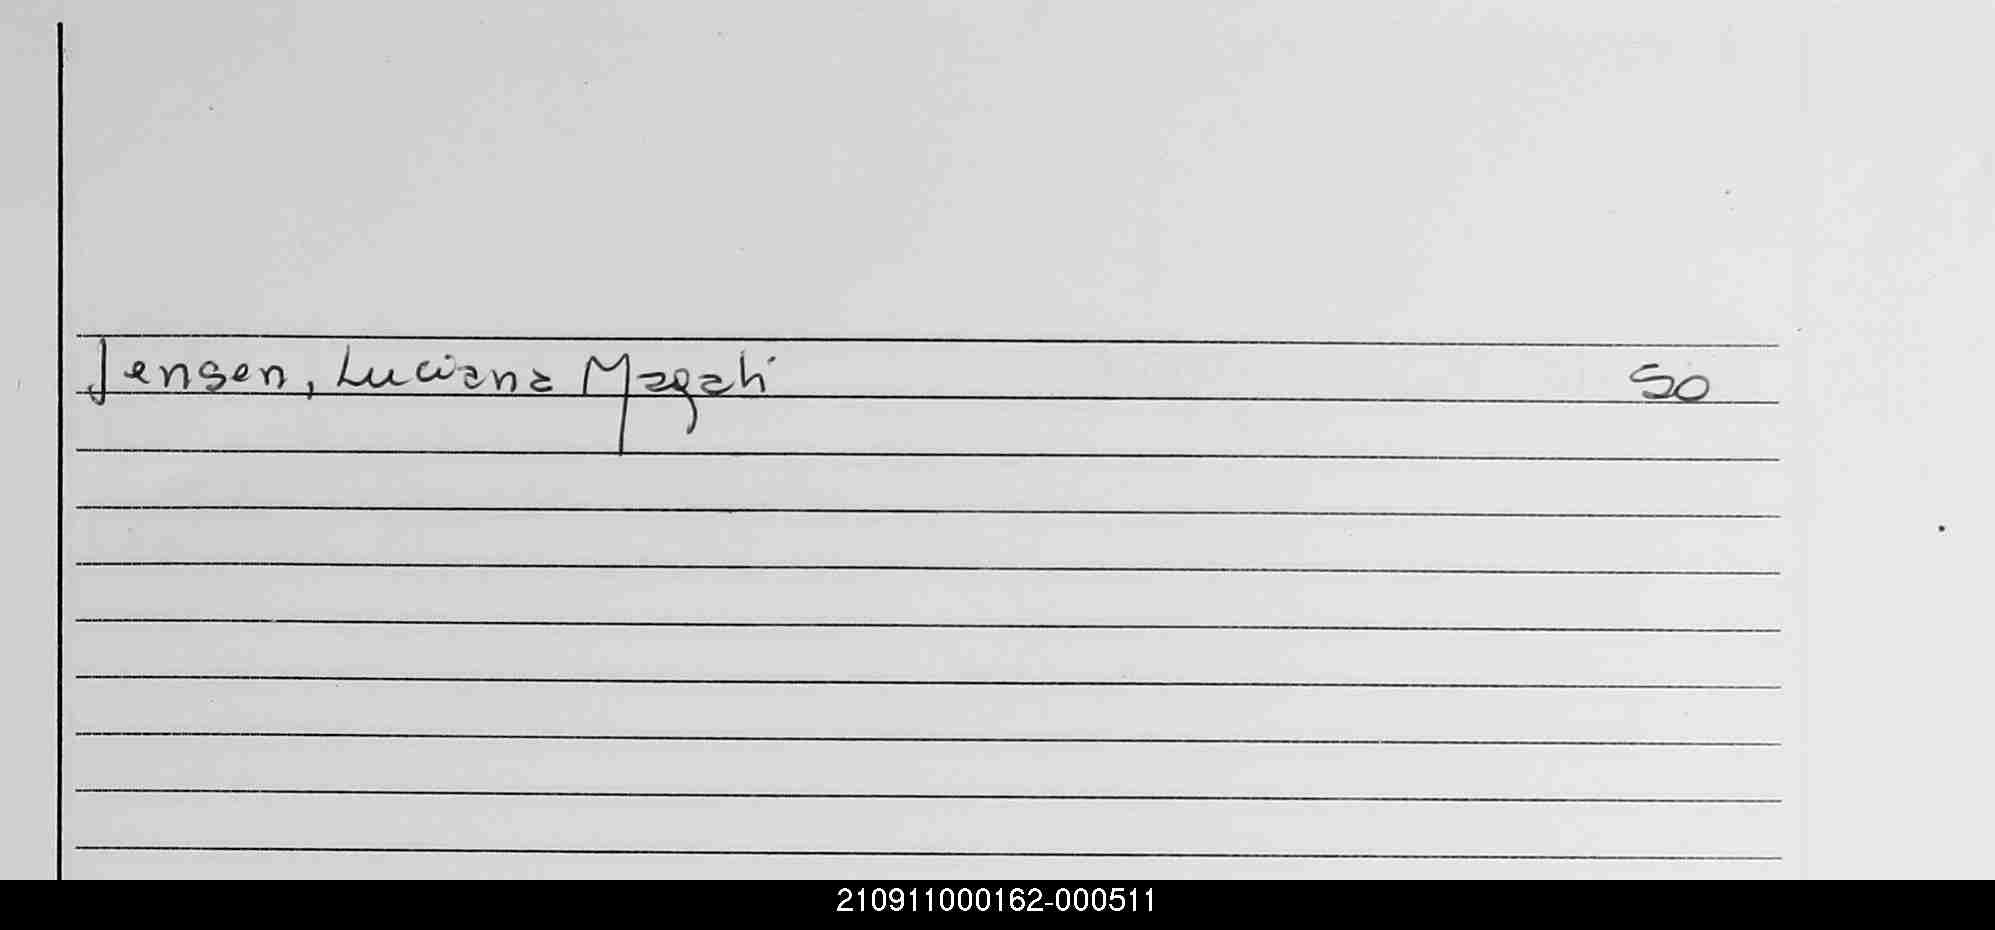 Jensen, Luciana Magali 50
210911000162-000511